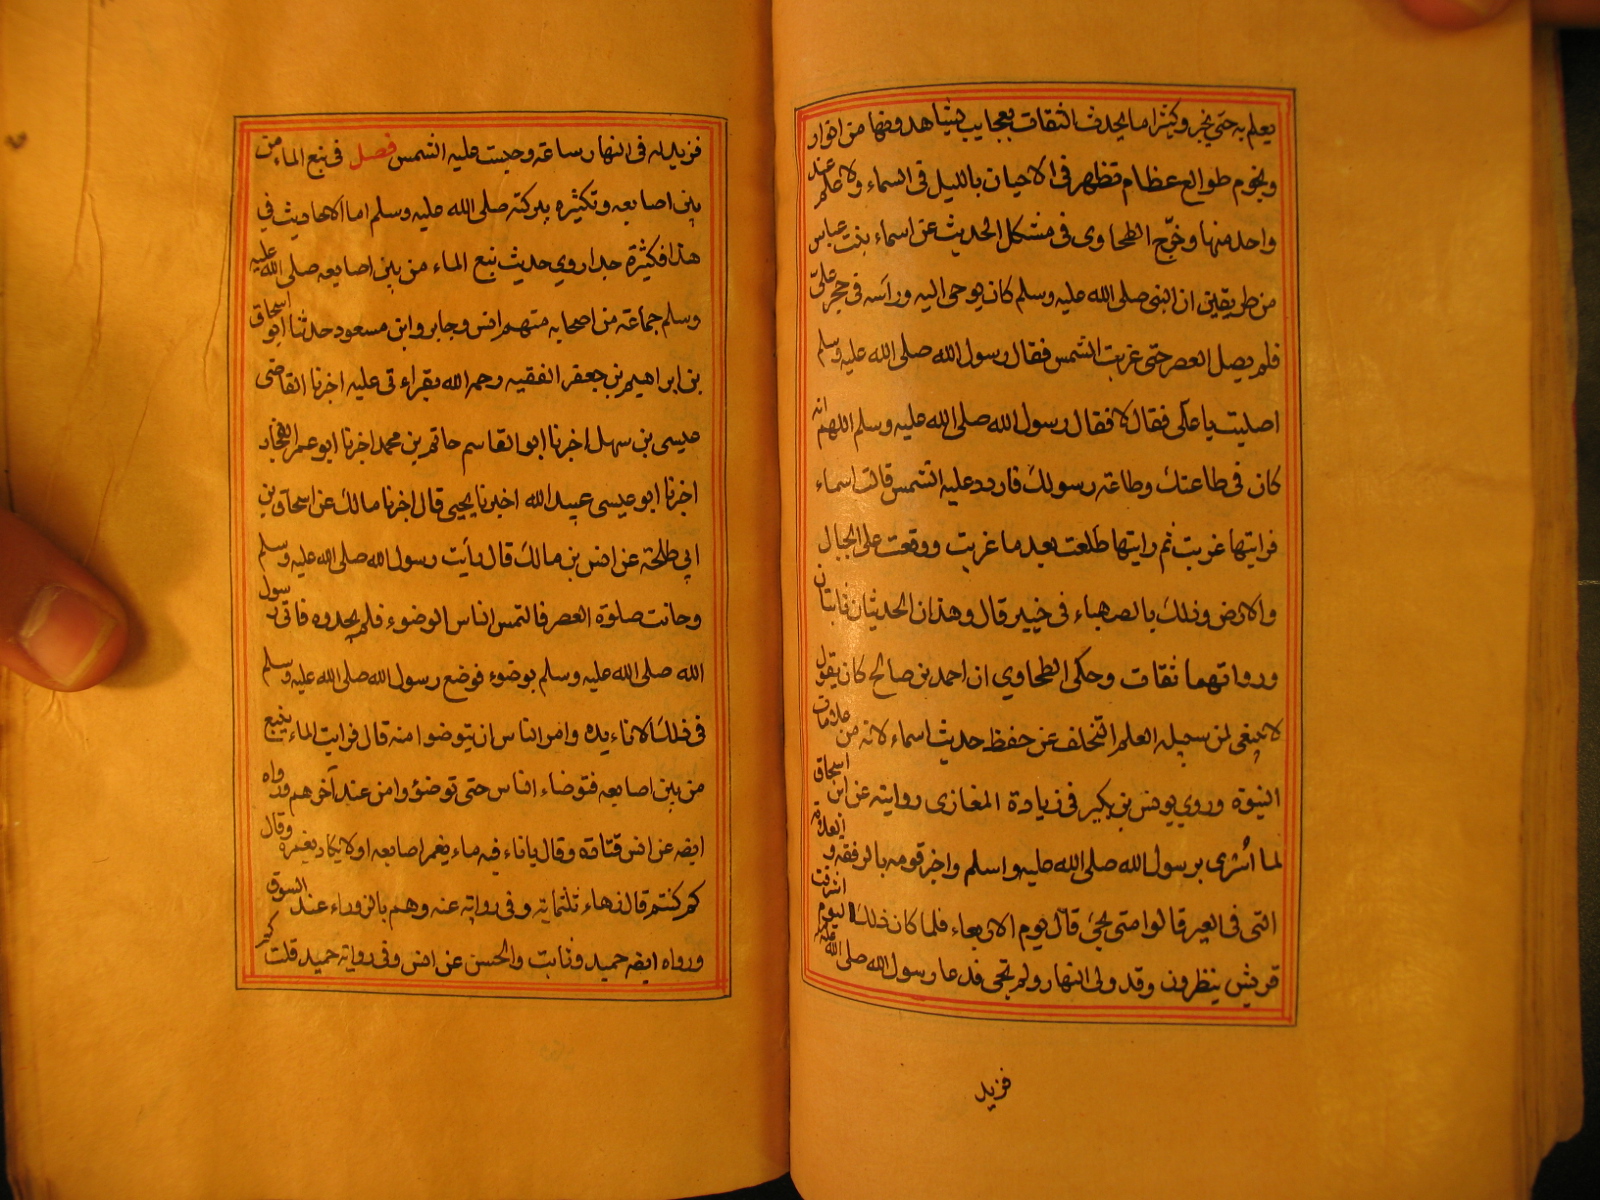 يعلم به حتى يخبر وكثيرا ما يحدث الثقات بعجايب يشاهدونها من انوار
ونجوم طوالع عظام تظهر فى الاحيان بالليل فى السماء ولا علم عند
واحد منها وخرّج الطحاوى فى مشكل الحديث عن اسماء بنت عباس
من طريقين ان النبى صلى الله عليه وسلم كان يوحى اليه وراسه فى حجر علىّ
فلم يصل العصر حتى غربت الشمس فقال رسول الله صلى الله عليه وسلم
اصليت يا على فقال لا فقال رسول الله صلى الله عليه وسلم اللهم انه
كان فى طاعتك وطاعة رسولك فاردد عليه الشمس قالت اسماء
فرايتها غربت ثم رايتها طلعت بعد ما غربت ووقعت على الجبال
والارض وذلك بالصهباء فى خيبر قال وهذان الحديثان ثابتان
ورواتهما ثقات وحكى الطحاوي ان احمد بن صالح كان يقول
لا ينبغى لمن سبيله العلم التخلف عن حفظ حديث اسماء لانه من علامات
النبوة وروي يونس بن بكير فى زيادة المغازى روايته عن ابن اسحاق
لما اُسْرى برسول الله صلى الله عليه واسلم واخبر قومه بالرفقه و العلامة
التى فى العير قالوا متى تجئ قال يوم الاربعاء فلما كان ذلك اليوم اشرفت
قريش ينظرون وقد ولى النهار ولم تجئ فدعا رسول الله صلى الله عليه
فزيد
فزيد له فى النهار ساعة وحبست عليه الشمس فصل فى نبع الماء من
بين اصابعه وتكثيره ببركته صلى الله عليه وسلم اما الاحاديث في
هذا فكثيرة جدا روي حديث نبع الماء من بين اصابعه صلى الله عليه
وسلم جماعة من اصحابه منهم انس وجابر وابن مسعود حدثنا ابو اسحاق
بن ابراهيم بن جعفر الفقيه رحمه الله بقراءتى عليه اخبرنا القاضى
عيسى بن سهل اخبرنا ابو القاسم حاتم بن محمد اخبرنا ابو عمر الفخار
اخبرنا ابو عيسى عبيد الله اخبرنا يحيى قال اخبرنا مالك عن اسحاق بن
ابي طلحة عن انس بن مالك قال رأيت رسول الله صلى الله عليه وسلم
وحانت صلوة العصر فالتمس الناس الوضوء فلم يجدوه فاتى رسول
الله صلى الله عليه وسلم بوضوء فوضع رسول الله صلى الله عليه وسلم
فى ذلك الاناء يده وامر الناس ان يتوضوا منه قال فرايت الماء ينبع
من بين اصابعه فتوضاء الناس حتى توضؤ وا من عند آخرهم ورواه
ايضه عن انس قتادة وقال باناء فيه ماء يغمر اصابعه اولا يكاد يغمره وقال
كم كنتم قال زهاء ثلثماية وفى رواية عنه وهم بالزوراء عند السوق
ورواه ايضه حميد وثابت والحسن عن انس وفى رواية حميد قلت كم